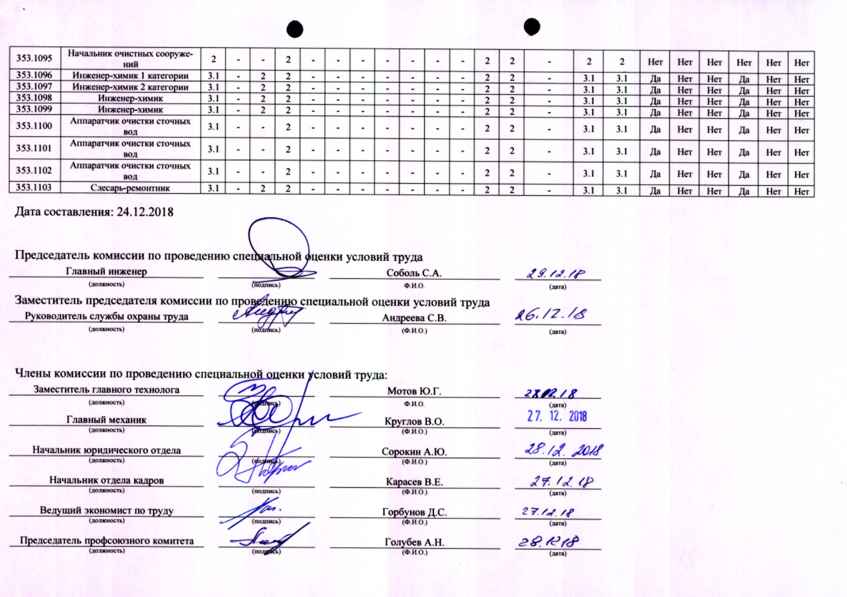 353.1095 Начальник очистных сооруже-
ний 2 - - 2 - - - - - - - 2 2 - 2 2 Нет Нет Нет Нет Нет Нет
353.1096 Инженер-химик 1 категории 3.1 - 2 2 - - - - - - - 2 2 - 3.1 3.1 Да Нет Нет Да Нет Нет
353.1097 Инженер-химик 2 категории 3.1 - 2 2 - - - - - - - 2 2 - 3.1 3.1 Да Нет Нет Да Нет Нет
353.1098 Инженер-химик 3.1 - 2 2 - - - - - - - 2 2 - 3.1 3.1 Да Нет Нет Да Нет Нет
353.1099 Инженер-химик 3.1 - 2 2 - - - - - - - 2 2 - 3.1 3.1 Да Нет Нет Да Нет Нет
353.1100 Аппаратчик очистки сточных
вод 3.1 - - 2 - - - - - - - 2 2 - 3.1 3.1 Да Нет Нет Да Нет Нет
353.1101 Аппаратчик очистки сточных
вод 3.1 - - 2 - - - - - - - 2 2 - 3.1 3.1 Да Нет Нет Да Нет Нет
353.1102 Аппаратчик очистки сточных
вод 3.1 - - 2 - - - - - - - 2 2 - 3.1 3.1 Да Нет Нет Да Нет Нет
353.1103 Слесарь-ремонтник 3.1 - 2 2 - - - - - - - 2 2 - 3.1 3.1 Да Нет Нет Да Нет Нет
Дата составления: 24.12.2018
Председатель комиссии по проведению специальной оценки условий труда
Главный инженер Соболь С.А. 29.12.18
(должность) (подпись) Ф.И.О. (дата)
Заместитель председателя комиссии по проведению специальной оценки условий труда
Руководитель службы охраны труда Андреева С.В. 26.12.18
(должность) (подпись) (Ф.И.О.) (дата)
Члены комиссии по проведению специальной оценки условий труда:
Заместитель главного технолога Мотов Ю.Г.
(должность) (подпись) Ф.И.О. (дата)
Главный механик Круглов В.О. 27. 12. 2018
(должность) (подпись) (Ф.И.О.) (дата)
Начальник юридического отдела Сорокин А.Ю. 28.12. 2018
(должность) (подпись) (Ф.И.О.) (дата)
Начальник отдела кадров Карасев В.Е. 27.12.18
(должность) (подпись) (Ф.И.О.) (дата)
Ведущий экономист по труду Горбунов Д.С. 27.12.18
(должность) (подпись) (Ф.И.О.) (дата)
Председатель профсоюзного комитета Голубев А.Н. 28.12.18
(должность) (подпись) (Ф.И.О.) (дата)